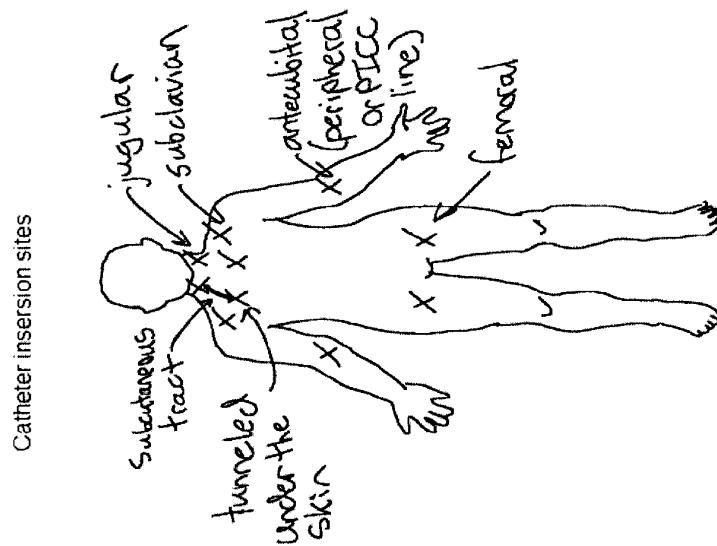 Catheter insersion sites
jugular
subclavian
antecubital
(peripheral
or PICC
line)
femoral
Subcutaneous
tract
tunneled
under the
skin